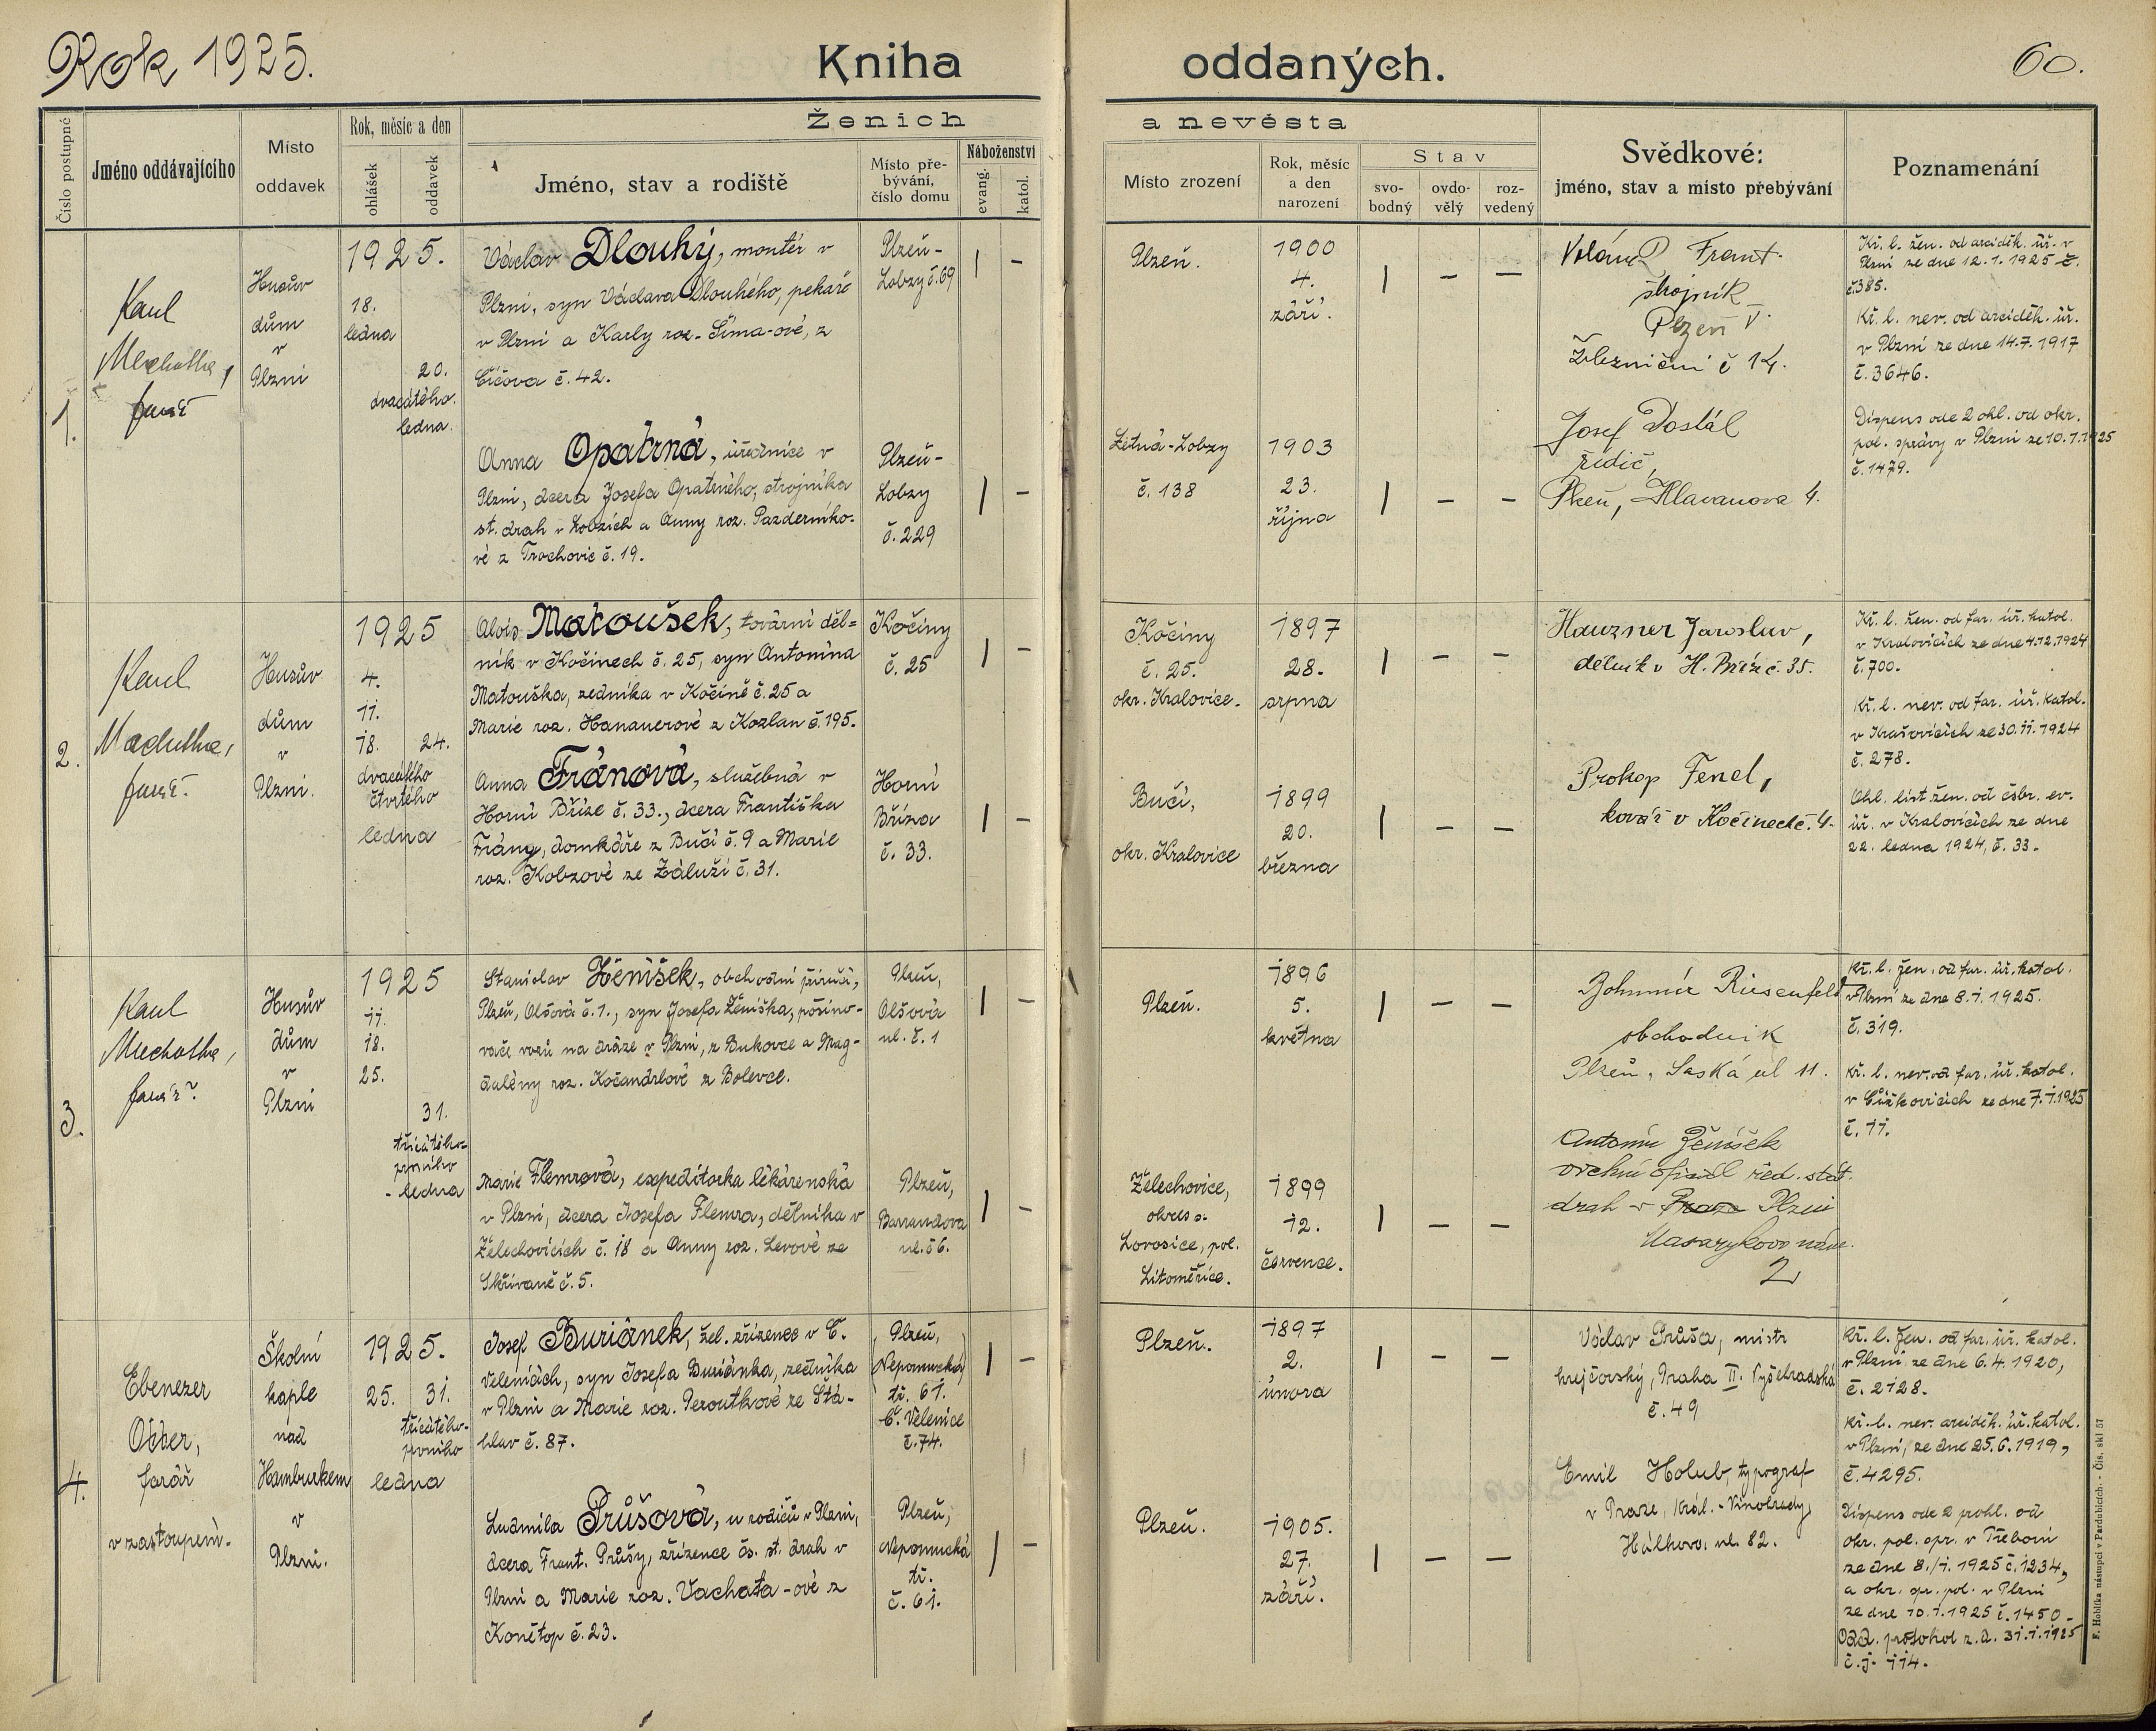 Rok 1925.
Kniha oddaných.
60.
Číslo postupné
Jméno oddávajícího
Místo
oddavek
Rok, měsíc a den
ohlášek
oddavek
Ženich a nevěsta
Jméno, stav a rodiště
Místo pře-
bývání,
číslo domu
Náboženství
evang.
katol.
Místo zrození
Rok, měsíc
a den
narození
Stav
svo-
bodný
ovdo-
vělý
roz-
vedený
Svědkové:
jméno, stav a místo přebývání
Poznamenání
1.
Karel
Machotka,
farář
Husův
dům
v
Plzni
1925.
18.
ledna
20.
dvacátého
ledna.
Václav Dlouhý, montér v
Plzni, syn Václava Dlouhého, pekaře
v Plzni a Karly roz. Šíma-ové, z
č. 42.
Plzeň-
Lobzy č. 69
| -
Plzeň.
1900
4.
září.
| - -
Frant.
strojník
Plzeň V.
Železniční č 14.
Kř. l. žen. od arciděk. úř. v
Plzni ze dne 12.1.1925 č.
č.385.
Kř. l. nev. od arciděk. úř.
v Plzni ze dne 14.7.1917
č.3646.
Anna Opatrná, úřednice v
Plzni, dcera Josefa Opatrného, strojníka
st. drah v Lobzích a Anny roz. Pazderníko-
vé z č. 19.
Plzeň-
Lobzy
č. 229
| -
Letná-Lobzy
č. 138
1903
23.
října
| - -
Josef Dostál
řidič,
Plzeň, Hlavanova 4.
Dispens ode 2 ohl. od okr.
pol. správy v Plzni ze 10.1.1925
č.1479.
2.
Karel
Machotka,
farář.
Husův
dům
v
Plzni.
1925
4.
11.
18. 24.
dvacátého
čtvrtého
ledna
Alois Matoušek, tovární děl=
ník v Kočínech č. 25, syn Antonína
Matouška, zedníka v Kočíně č. 25 a
Marie roz. Hanauerové z Kozlan č. 195.
Kočiny
č. 25
| -
Kočiny
č. 25.
okr. Kralovice.
1897
28.
srpna
| - -
Hauzner Jaroslav,
dělník v H. Bříze č. 35.
Kř. l. žen. od far. úř. katol.
v Kralovicích ze dne 4.12.1924
č.700.
Kř. l. nev. od far. úř. katol.
v Krašovicích ze 30.11.1924
č. 278.
Anna Fránová, služebná v
Horní Bříze č. 33., dcera Františka
Frány, domkáře z Bučí č. 9 a Marie
roz. Kobzové ze Záluží č. 31.
Horní
Bříza
č. 33.
| -
Bučí,
okr. Kralovice
1899
20.
března
| - -
Prokop Fenel,
kovář v Kočinech č. 4.
Ohl. list žen. od čsbr. ev.
úř. v Kralovicích ze dne
22. ledna 1924, č. 33.
3.
Karel
Machotka,
farář
Husův
dům
v
Plzni
1925
11.
18.
25.
31.
třicátého-
prvního
ledna
Stanislav Ženíšek, obchodní příručí,
Plzeň, Olšová č. 1., syn Josefa Ženíška, pošino-
vače vozů na dráze v Plzni, z Bukovce a Mag-
dalény roz. Kočandrlové z Bolevce.
Plzeň,
Olšová
ul. č. 1
| -
Plzeň.
1896
5.
května
| - -
Bohumír Riesenfeld
obchodník
Plzeň, Saská ul 11.
Kř. l. žen. od far. úř. katol.
v Plzni ze dne 8.1.1925.
č. 319.
Kř. l. nev. od far. úř. katol.
v Čížkovicích ze dne 7.1.1925
č. 11.
Marie Flemrová, expeditorka lékárenská
v Plzni, dcera Josefa Flemra, dělníka v
Želechovicích č. 18 a Anny roz. Levové ze
Skřivaně č. 5.
Plzeň,
Barrandova
ul. č 6.
| -
Želechovice,
okres s.
Lovosice, pol.
Litoměřice.
1899
12.
července.
| - -
Antonín Ženíšek
vrchní oficiál řed. stát.
drah v Praze Plzni
Masarykovo nám.
2
4.
Ebenezer
Otter,
farář
v zastoupení.
Školní
kaple
nad
Hamburkem
v
Plzni.
1925.
25. 31.
třicátého-
prvního
ledna
Josef Buriánek, žel. zřízenec v Č.
Velenicích, syn Josefa Buriánka, zedníka
v Plzni a Marie roz. Peroutkové ze Stá-
hlav č. 87.
Plzeň,
Nepomucká
tř. 61.
Č. Velenice
č. 74.
| -
Plzeň.
1897
2.
února
| - -
Václav Průša, mistr
krejčovský, Praha II. Vyšehradská
č. 49
Kř. l. žen. od far. úř. katol.
v Plzni ze dne 6.4.1920,
č. 2128.
Kř. l. nev. arciděk. úř. katol.
v Plzni, ze dne 25.6.1919,
č. 4295.
Ludmila Průšová, u rodičů v Plzni,
dcera Frant. Průšy, zřízence čs. st. drah v
Plzni a Marie roz. Vachata-ové z
Konětop č. 23.
Plzeň,
Nepomucká
tř.
č. 61.
| -
Plzeň.
1905.
27.
září.
| - -
Emil Holub, typograf
v Praze, Král. - Vinohrady,
Hálkova ul. 82.
Dispens ode 2 pohl. od
okr. pol. spr. v Třeboni
ze dne 8./1. 1925 č. 1234,
a okr. spr. pol. v Plzni
ze dne 10.1.1925 č. 1450-
Odd. protokol z.d. 31.1.1925
č.j. 114.
F. Hoblíka nástupci v Pardubicích - Čís. skl 57